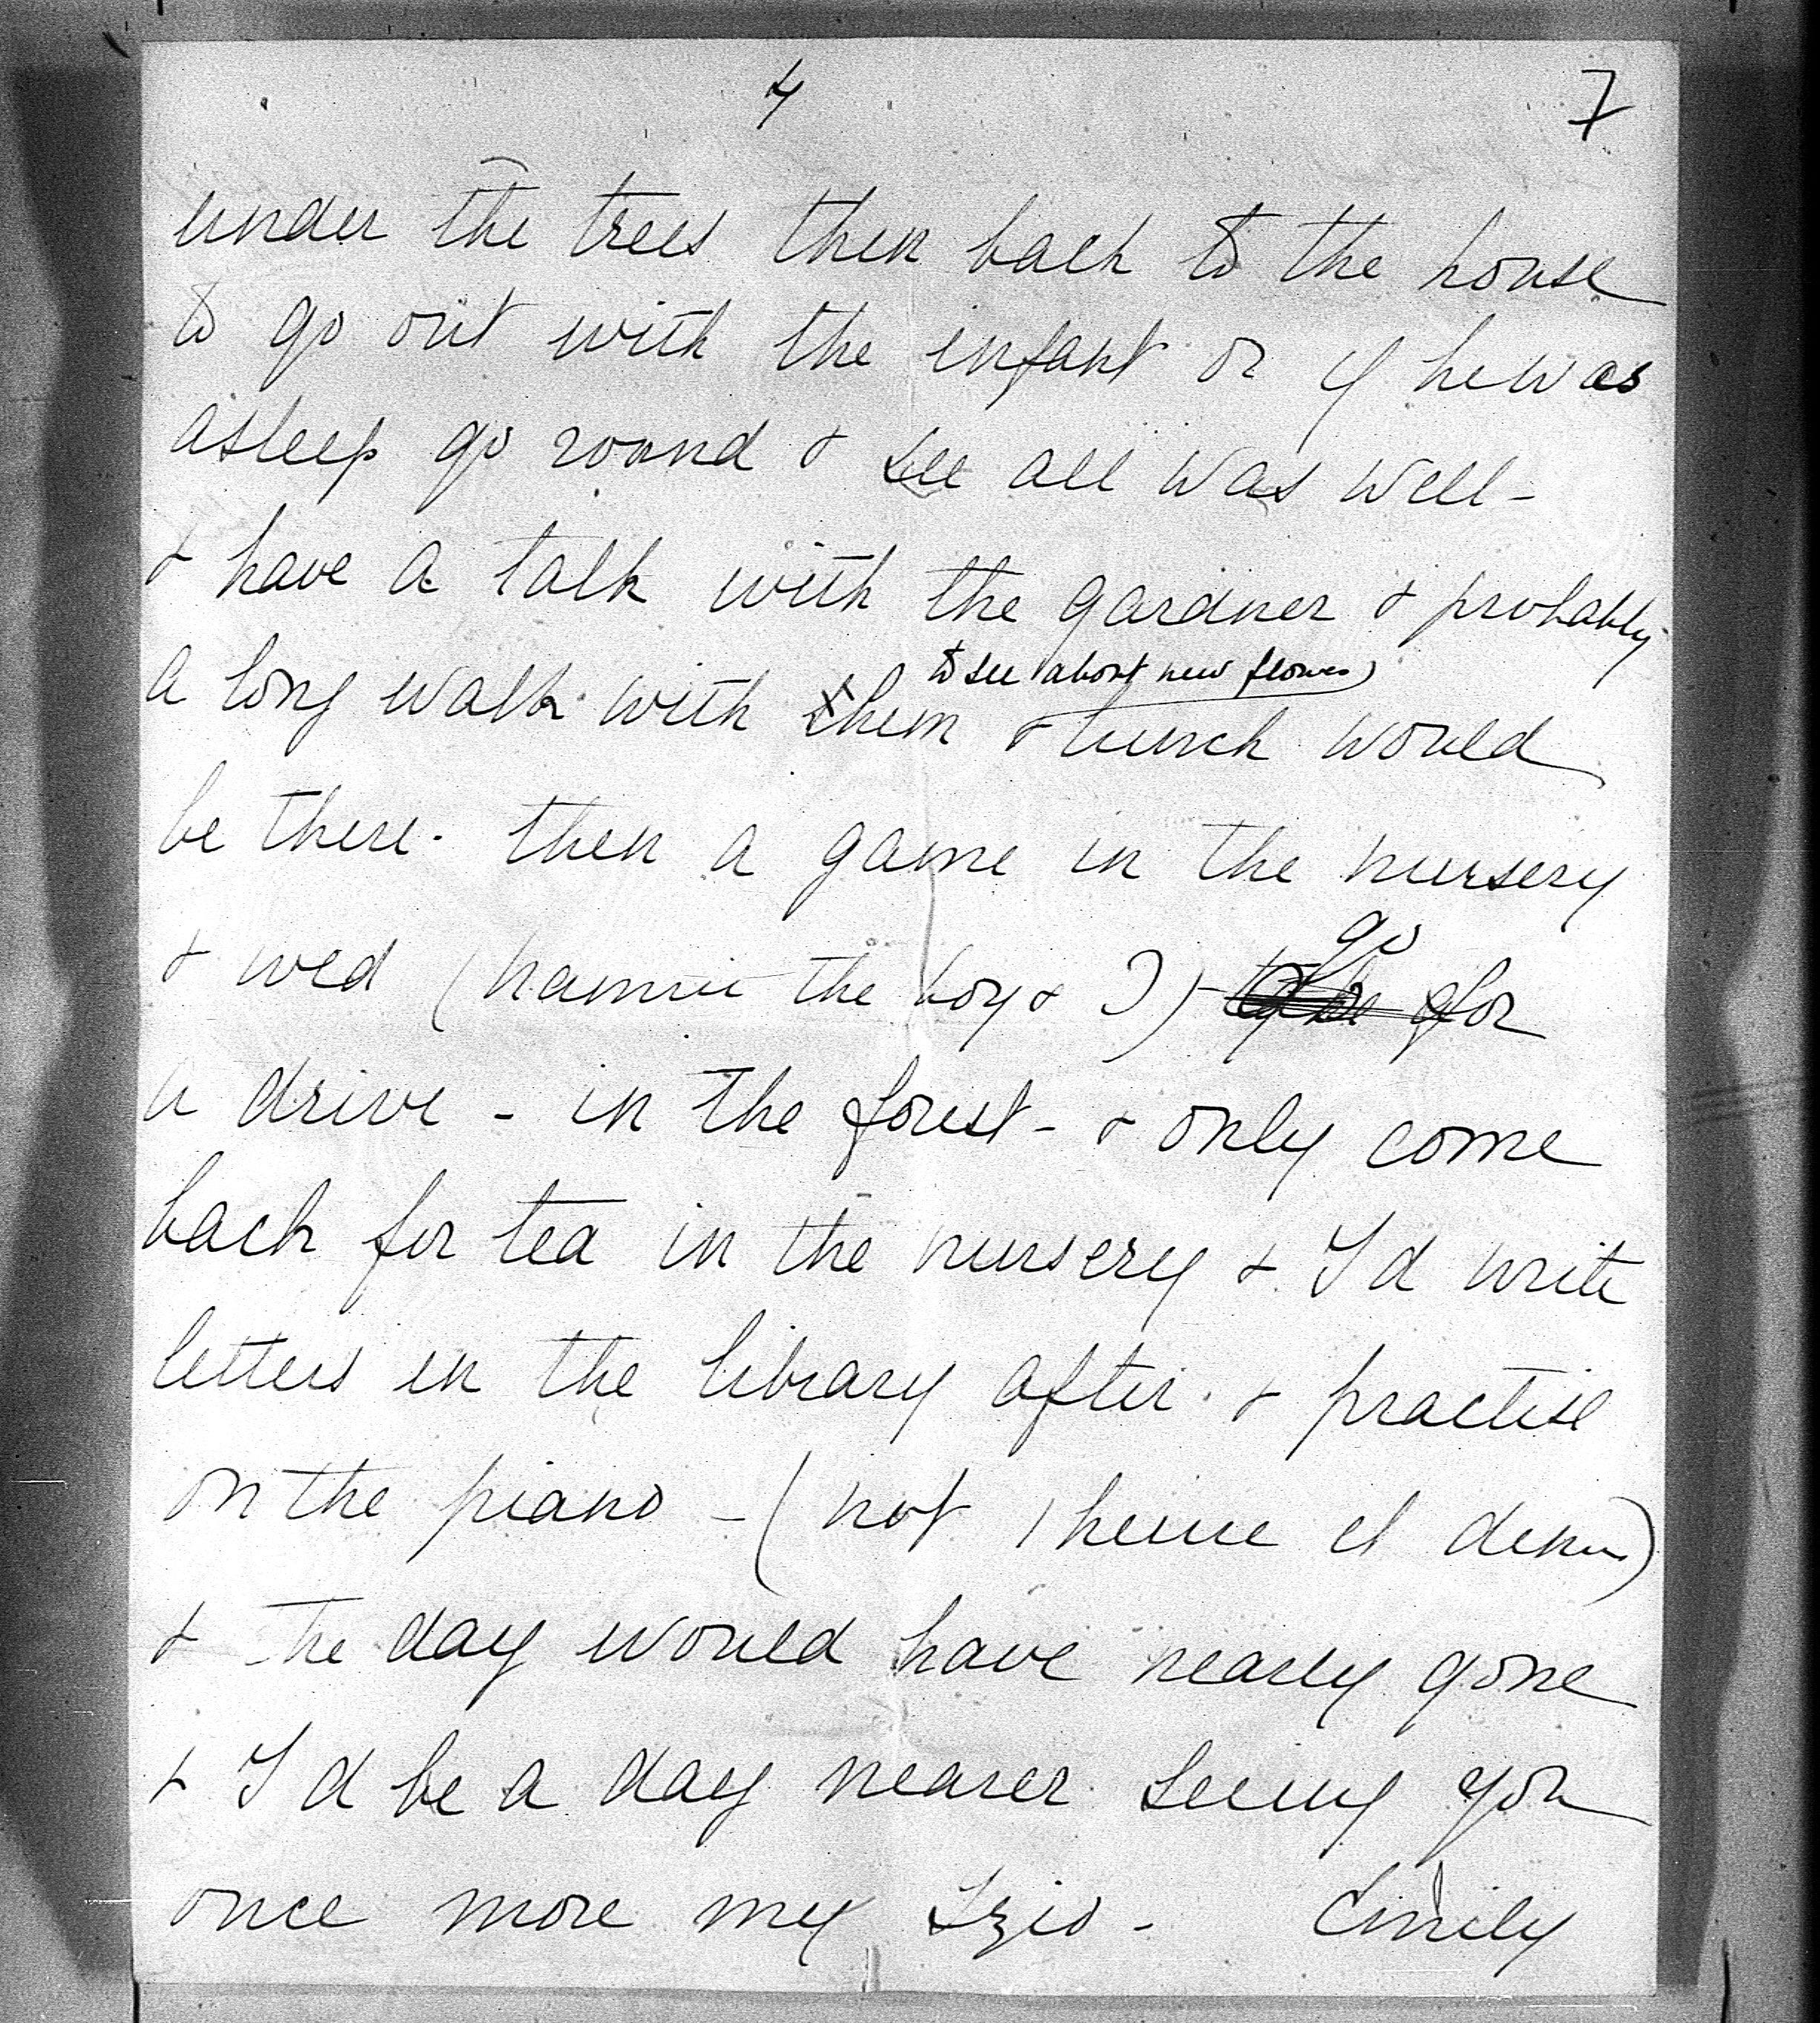 4 7
under the trees then back to the house
to go out with the infant or if he was
asleep go round & see all was well -
& have a talk with the gardner & probably
to see about new flowers)
a long walk with them & lunch would
be there. then a game in the nursery
go
& wed (nannie the boy & I) - for
a drive - in the forest - & only come
back for tea in the nursery & I'd write
letters in the library after. & practise
on the piano - (not
& the day would have nearly gone
& I'd be a day nearer seeing you
once more my Szio - Emily